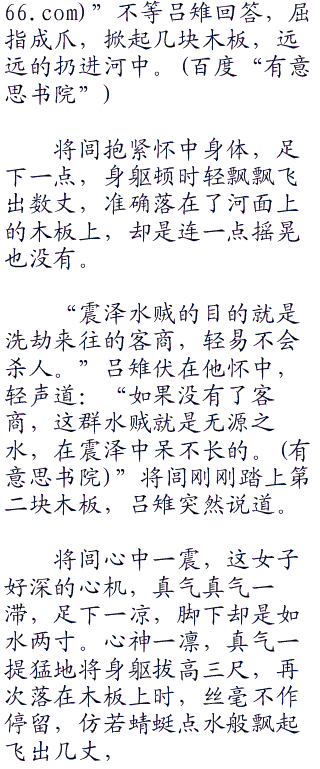 66.com)”不等吕雉回答，屈
指成爪，掀起几块木板，远
远的扔进河中。(百度“有意
思书院”)
将闾抱紧怀中身体，足
下一点，身躯顿时轻飘飘飞
出数丈，准确落在了河面上
的木板上，却是连一点摇晃
也没有。
“震泽水贼的目的就是
洗劫来往的客商，轻易不会
杀人。”吕雉伏在他怀中，
轻声道：“如果没有了客
商，这群水贼就是无源之
水，在震泽中呆不长的。(有
意思书院)”将闾刚刚踏上第
二块木板，吕雉突然说道。
将闾心中一震，这女子
好深的心机，真气真气一
滞，足下一凉，脚下却是如
水两寸。心神一凛，真气一
提猛地将身躯拔高三尺，再
次落在木板上时，丝毫不作
停留，仿若蜻蜓点水般飘起
飞出几丈，